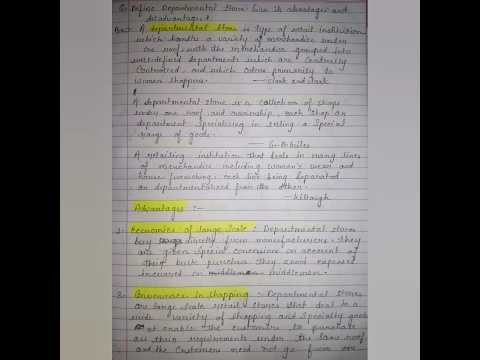 Q. Define Departmental Store. Give its advantages and
disadvantages?
Ans:- A departmental store is type of retail institution
which handles a variety of merchandise under
one roof, with the merchandise grouped into
well-defined departments which are centrally
controlled, and which caters primarily to
women shoppers. — Clark and Clark
A departmental store is a collection of shops
under one roof and ownership, each shop or
department specialising in selling a special
range of goods.
A retailing institution that deals in many lines
of merchandise including women's wear and
house furnishing, each line being separated
or departmentalised from the other.
Advantages :-
1. Economics of Large Scale : Departmental stores
buy directly from manufacturers. They
are given special concession on account of
their bulk purchases they avoid expenses
incurred on middleman.
2. Convenience in Shopping :- Departmental Stores
are large scale retail stores that deal in a
wide variety of shopping and Speciality goods
enable the customers to purchase
all their requirements under the same roof
and the customers need not go from one